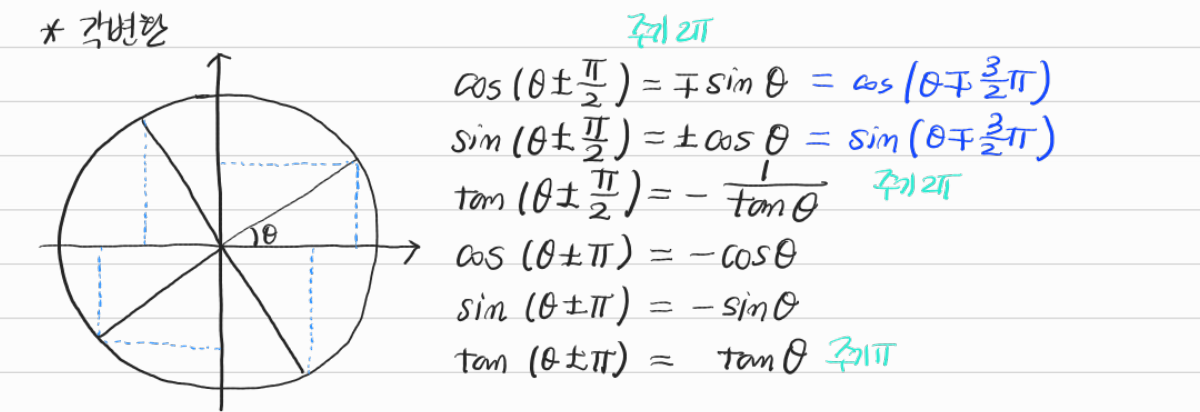 * 각변환
주기 2π
cos(θ±π/2) = ∓sinθ = cos(θ∓3/2π)
sin(θ±π/2) = ±cosθ = sin(θ∓3/2π)
주기 2π
tan(θ±π/2) = -1/tanθ
θ
cos(θ±π) = -cosθ
sin(θ±π) = -sinθ
tan(θ±π) = tanθ 주기 π